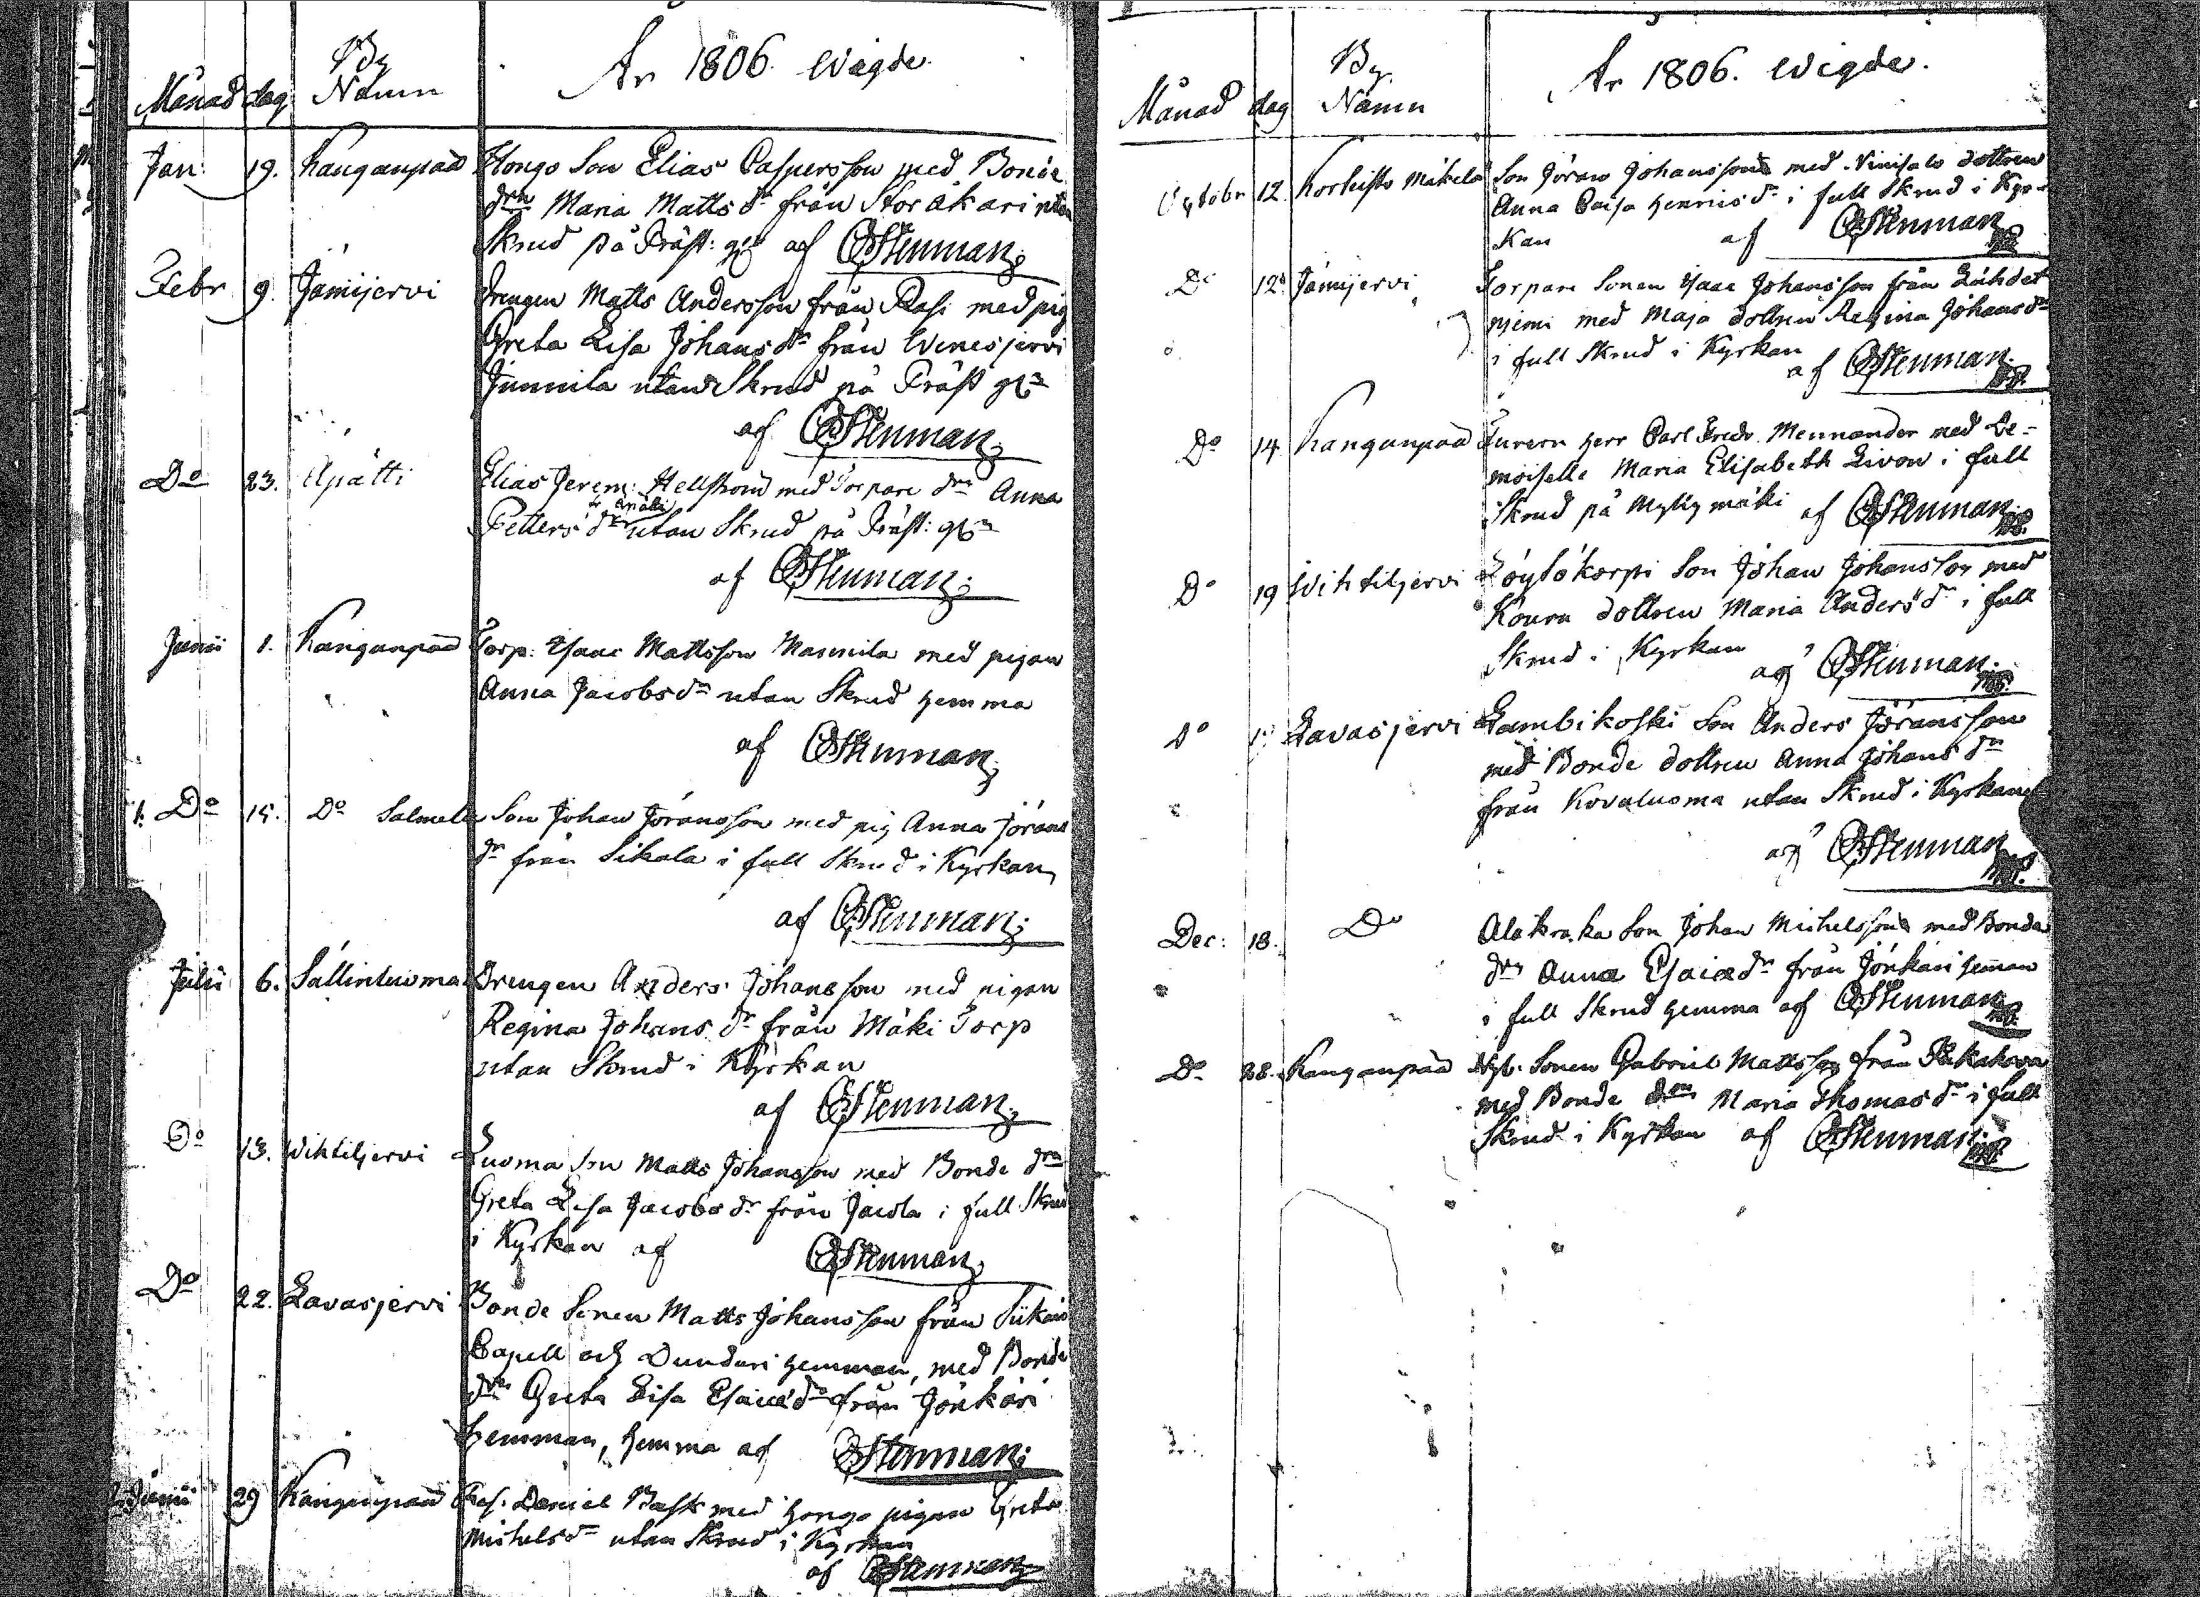 År 1806. Wigde.
Månad dag By Namn
Jan: 19. Kanganpää Hongo Son Elias Caspersson med Bonde
drn Maria Matts dr från Storåkari utan
Skrud på Präst: g af Stenman
Febr 9. Jämijervi Drengen Matts Andersson från Rasi med pig
Greta Lisa Johans dr från Wenesjervi
Junnila utan Skrud på Präst
af Stenman
Do 23. Apätti Elias Jerem: Hellström med Torpare drn Anna
Petters dr utan Skrud på Präst:
af Stenman
Junii 1. Kanganpää Torp: Isaac Mattsson Mannila med pigan
Anna Jacobs dr utan Skrud hemma
af Stenman
1. Do 15. Do Salmela Son Johan Jöransson med pig Anna Jörans
dr från Sikala i full Skrud i Kyrkan
af Stenman
Julii 6. Sällinluoma Drengen Anders Johansson med pigan
Regina Johans dr från Mäki Torp
utan Skrud i Kyrkan
af Stenman
Do 13. Wihteljervi Luoma Son Matts Johansson med Bonde drn
Greta Lisa Jacobs dr från Jacola i full Skrud
i Kyrkan af Stenman
Do 22. Lavasjervi Bonde Sonen Matts Johansson från Siikais
Capell och Dundari hemman, med Bonde
drn Greta Lisa Esaiæ dr från Jönkäri
hemman, hemma af Stenman
2. Junii 29 Kanganpää Daniel Bask med Hongo pigan Greta
Michels dr utan Skrud i Kyrkan
af Stenman
År 1806. Wigde.
Månad dag By. Namn
Octobr 12. Korhuisto Mäkelä Son Jöran Johansson med Niinisalo dottren
Anna Caisa Henrics dr i full Skrud i Kyr-
kan af Stenman
Do 12. Jämijervi Torpare Sonen Isaac Johansson från Lähdet
niemi med Maja dottren Regina Johans dr
i full Skrud i Kyrkan
af Stenman
Do 14 Kanganpää Herr Carl Fredr. Mennander med De-
moiselle Maria Elisabeth Livon i full
Skrud på Myllymäki af Stenman
Do 19 Wihteljervi Löytökorpi Son Johan Johansson med
Koura dottren Maria Anders dr i full
Skrud i Kyrkan
af Stenman
Do Lavasjervi Lambikoski Son Anders Jöransson
med Bonde dottren Anna Johans dr
från Kovaluoma utan Skrud i Kyrkan
af Stenman
Dec: 18. Do Alakraka Son Johan Michelsson med Bonde
drn Anna Esaiæ dr från Jönkäri hemman
i full Skrud hemma af Stenman
Do 28. Kanganpää Nyb. Sonen Gabriel Mattsson från
med Bonde drn Maria Thomas dr i full
Skrud i Kyrkan af Stenman